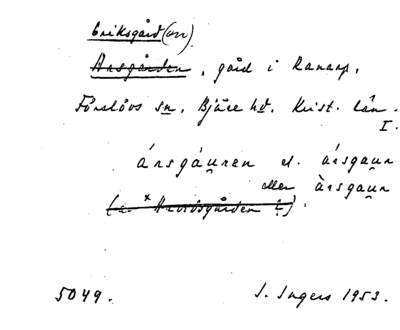 Eriksgård(en)
Arsgården, gård i Ranarp,
Förslövs sn, Bjäre hd. Krist. län.
I.
ársgáu̯ren el. ársgau̯r
eller àrsgau̯r
5049. I. Ingers 1953.